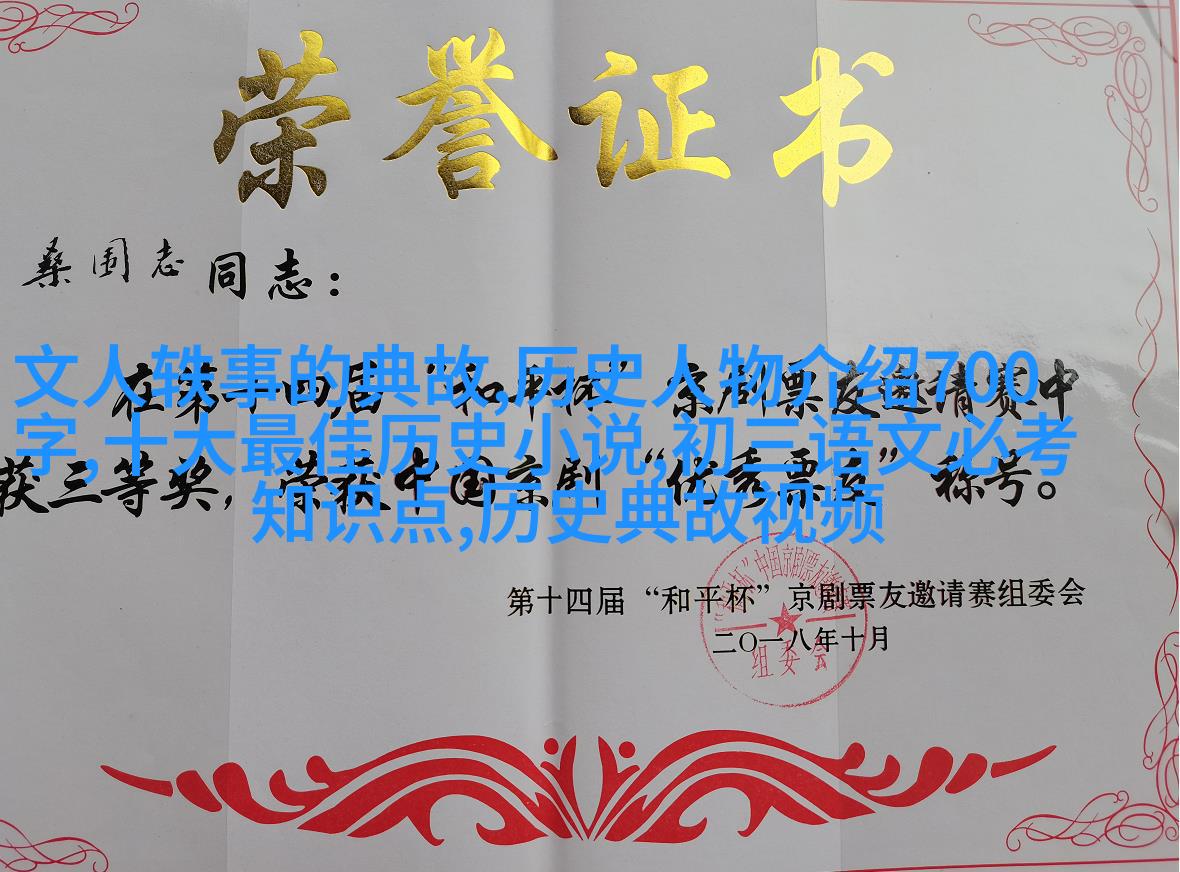 荣誉证书
桑国志同志：
在第十四届“和平杯”京剧票友邀请赛中
获三等奖，荣获中国京剧“优秀票友”称号。
文人轶事的典故,历史人物介绍700
字,十大最佳历史小说,初三语文必考
知识点,历史典故视频
第十四届“和平杯”京剧票友邀请赛组委会
二〇一八年十月
组委会